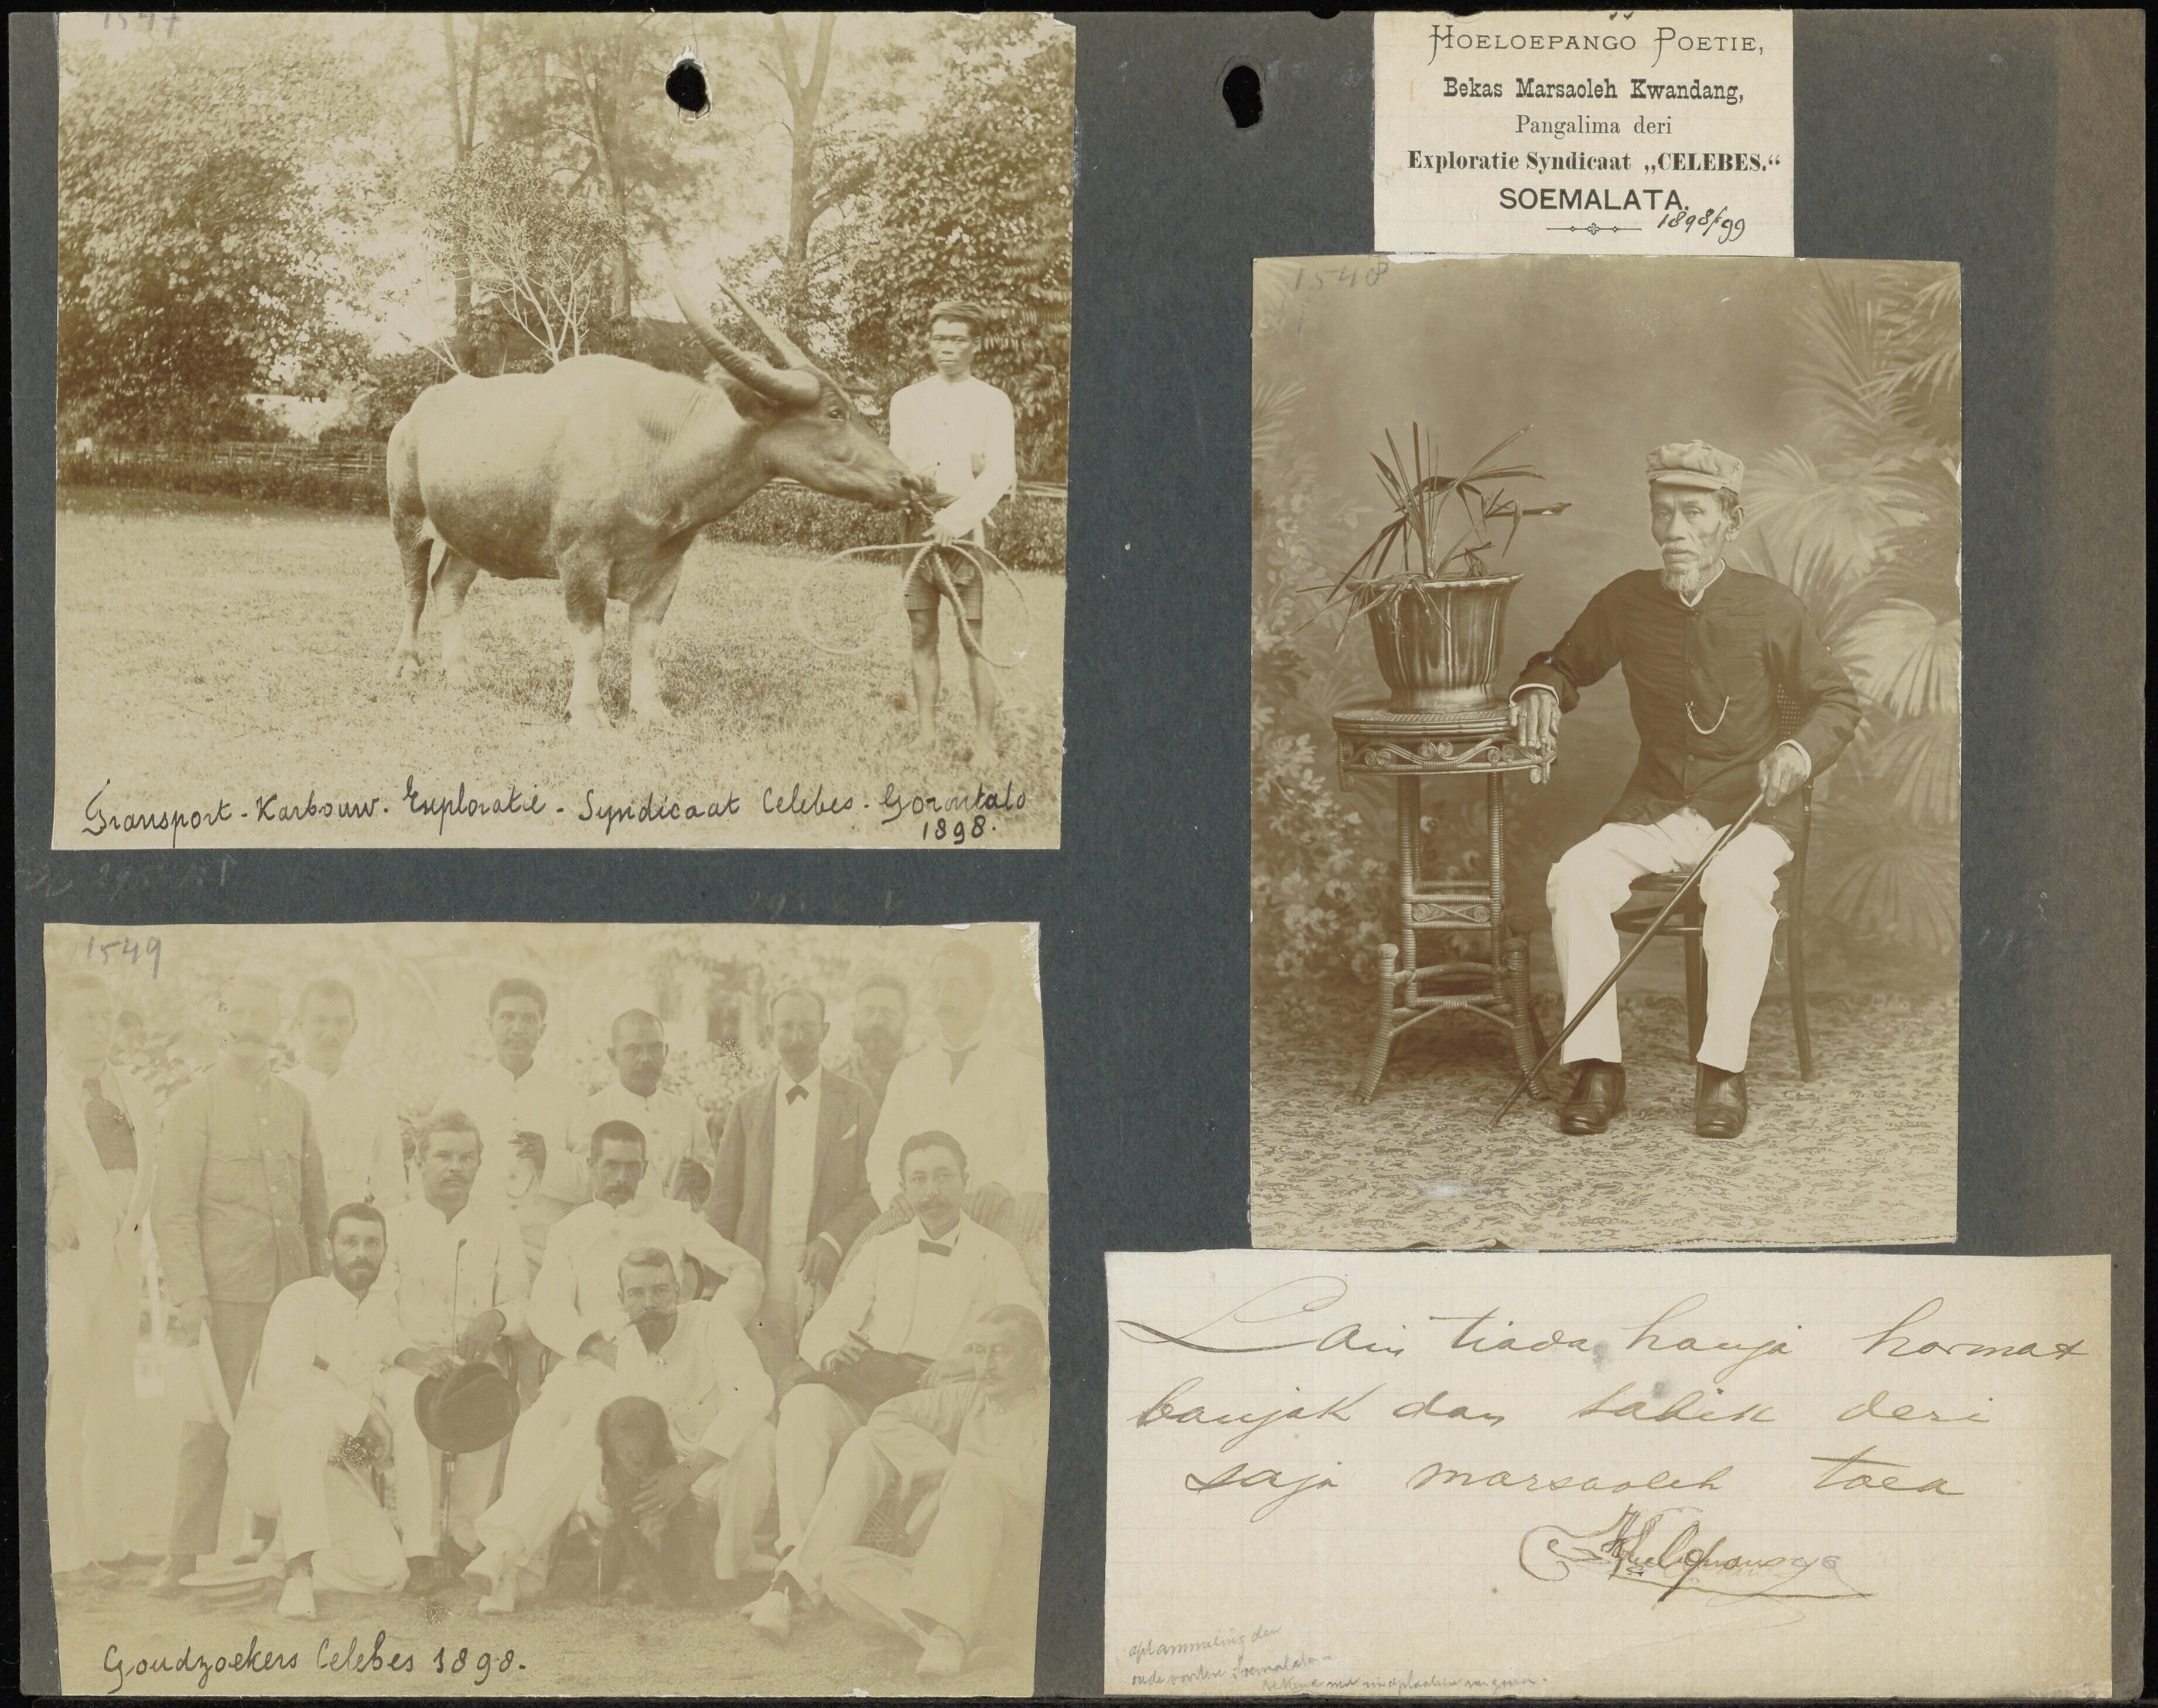 1547
Transport - Karbouw. Exploratie - Syndicaat Celebes - Gorontalo
1898.
HOELOEPANGO POETIE,
Bekas Marsaoleh Kwandang,
Pangalima deri
Exploratie Syndicaat „CELEBES.“
SOEMALATA.
1898/99
1548
1549
Goudzoekers Celebes 1898.
Lain tiada hanja hormat
banjak dan tabik deri
saja marsaoleh toea
Hoeloepango
afstammeling der
oude vorsten Soemalata